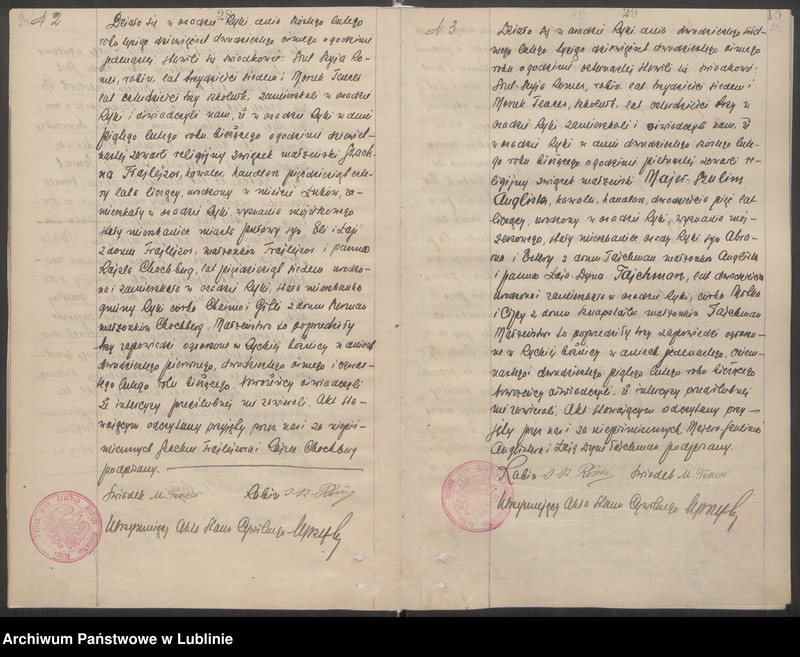 № 2
28
Działo się w osadzie Ryki, dnia szóstego lutego
roku tysiąc dziewięćset dwudziestego ósmego o godzinie
jedenastej stawili się świadkowie: Srul Szyja Ro-
mer, rabin, lat trzydzieści siedem i Morek Tencer
lat czterdzieści trzy szkolnik, zamieszkali w osadzie
Ryki i oświadczyli nam, iż w osadzie Ryki w dniu
piątego lutego roku bieżącego o godzinie dziewięt-
nastej zawarli religijny związek małżeński Szach-
na Frajlejzor, kawaler, handlarz, pięćdziesiąt czte-
ry lata liczący, urodzony w mieście Łuków, za-
mieszkały w osadzie Ryki, wyznania mojżeszowego
stały mieszkaniec miasta syn Eli i Łaji
z domu Frajlejzor, małżonków Frajlejzor i panna
Rajzla Chochberg, lat pięćdziesiąt siedem urodzo-
na i zamieszkała w osadzie Ryki, stała mieszkanka
gminy Ryki córka Chaima i Gitli z domu
małżonków Chochberg. Małżeństwo to poprzedziły
trzy zapowiedzi ogłoszone w Ryckiej bóżnicy w dniach
dwudziestego pierwszego, dwudziestego ósmego i czwar-
tego lutego roku bieżącego. Nowożeńcy oświadczyli
że intercyzy przedślubnej nie zawierali. Akt sta-
wającym odczytany przyjęty przez nas i za niepiś-
miennych Szachna Frajlejzora i Rajzla Chochberg
podpisany.
Świadek M. Tencer Rabin
Utrzymujący Akta Stanu Cywilnego
№ 3
29
15
Działo się w osadzie Ryki dnia dwudziestego siód-
mego lutego tysiąc dziewięćset dwudziestego ósmego
roku o godzinie stawili się świadkowie:
Srul-Szyja Romer, rabin, lat trzydzieści siedem i
Morek Tencer, szkolnik, lat czterdzieści trzy w
osadzie Ryki zamieszkali i oświadczyli nam, iż
w osadzie Ryki w dniu dwudziestego szóstego lute-
go roku bieżącego o godzinie piętnastej zawarli re-
ligijny związek małżeński Majer-Szulim
Anglister, kawaler, handlarz, dwadzieścia pięć lat
liczący, urodzony w osadzie Ryki, wyznania moj-
żeszowego, stały mieszkaniec osady Ryki syn Abra-
ma i Estery z domu Tajchman małżonków Anglister
i panna Łaja Dyna Tajchman, lat dwadzieścia
urodzona i zamieszkała w osadzie Ryki, córka
i Cypy z domu małżonków Tajchman
Małżeństwo to poprzedziły trzy zapowiedzi ogłoszo-
ne w Ryckiej bóżnicy w dniach jedenastego, osiem-
nastego i dwudziestego piątego lutego roku bieżącego
Nowożeńcy oświadczyli, iż intercyzy przedślubnej
nie zawierali. Akt stawającym odczytany przy-
jęty przez nas i za niepiśmiennych Majera-Szulima
Anglistera i Łaję Dynę Tajchman podpisany.
Rabin Świadek M. Tencer
Utrzymujący Akta Stanu Cywilnego
Archiwum Państwowe w Lublinie